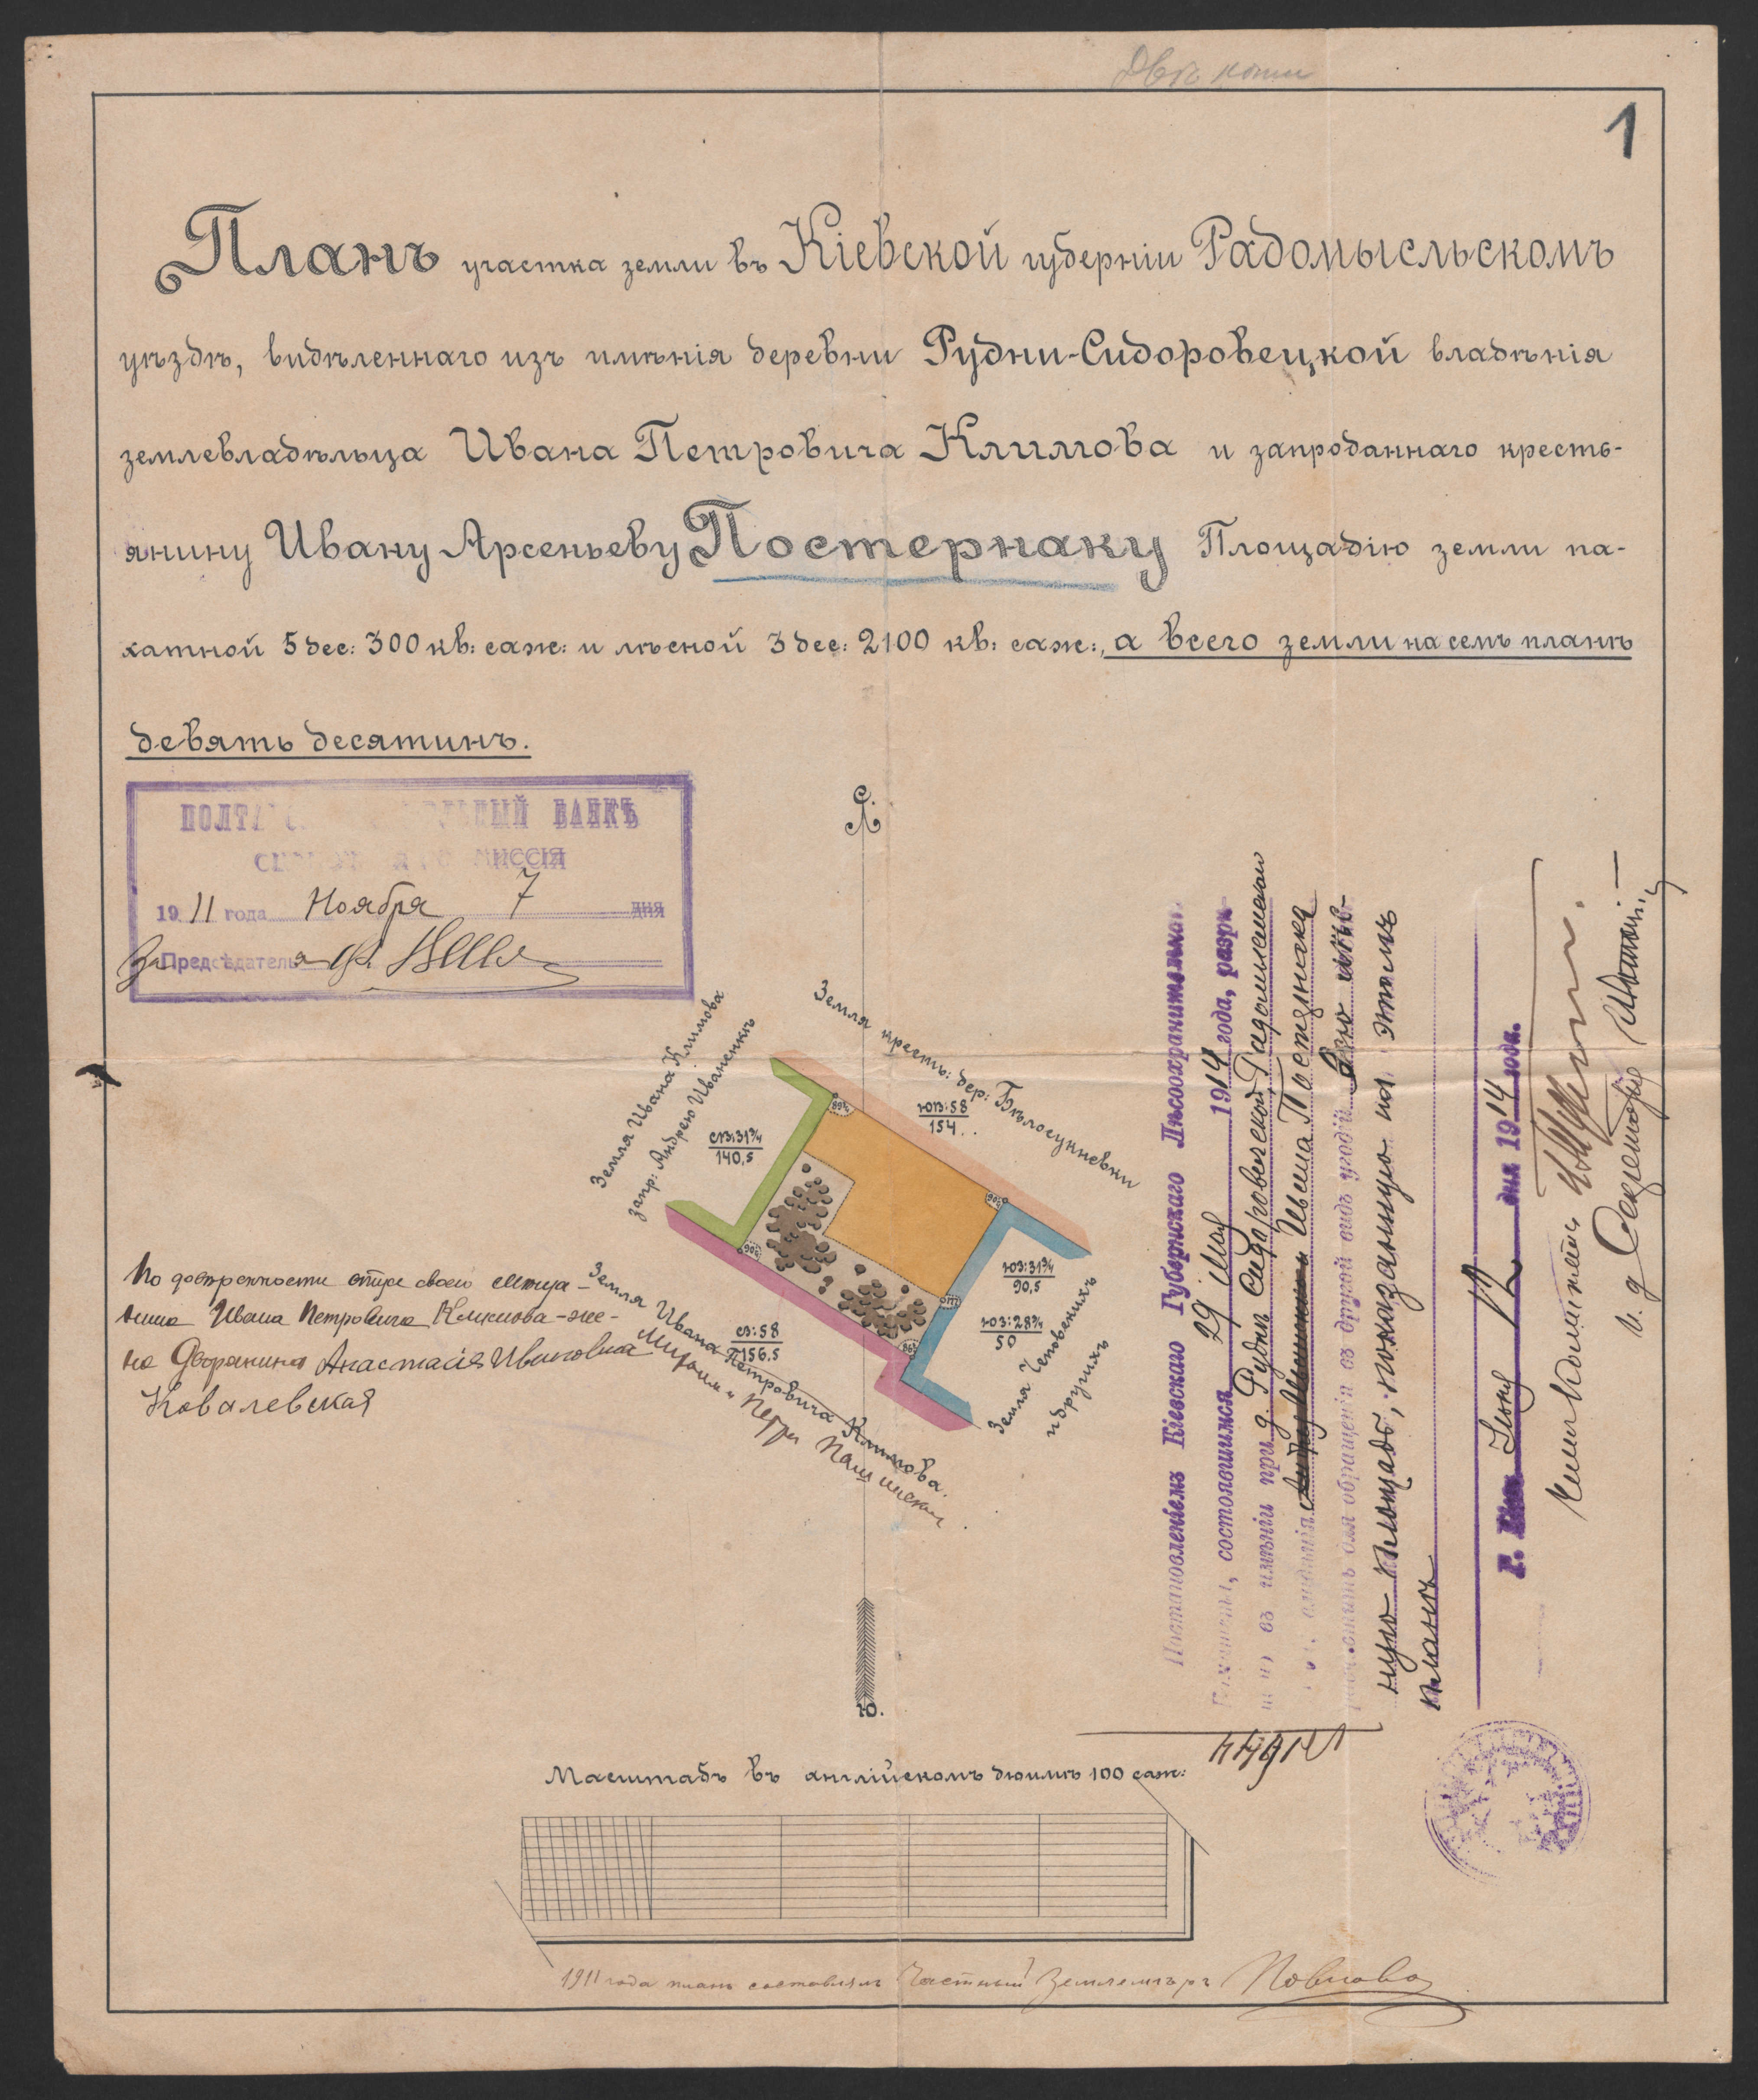 1
Планъ участка земли въ Кіевской губерніи Радомысльскомъ
уѣздѣ, видѣленнаго изъ имѣнія деревни Рудни-Сидоровецкой владѣнія
землевладѣльца Ивана Петровича Климова и запроданнаго кресть-
янину Ивану Арсеньеву Постернаку Площадію земли па-
хатной 5 дес: 300 кв: саж: и лѣсной 3 дес: 2100 кв: саж:, а всего земли на семъ планѣ
девять десятинъ.
БАНКЪ
1911 года Ноября 7 дня
За Предсѣдателя
С.
Земля Ивана Климова
запр: Андрею Иваненкѣ
Земля кресть: дер: Бѣлосукневки
СВ:31¾
140,5
ЮВ:58
154
ЮЗ:31¾
90,5
ЮЗ:28¾
50
СЗ:58
156,5
Земля Чеповецкихъ
и другихъ
Земля Ивана Петровича Климова.
По довѣренности отца своего
Ивана Петровича Климова - же-
на Дворянина Анастасія Ивановна
Ковалевская
Ю.
Постановленіемъ Кіевскаго Губернскаго Лѣсоохранительнаго
Комитета, состоявшимся 29 Мая 1914 года, разрѣ-
въ имѣніи при д. Рудня Сидоровецкой, Радомысльскаго
Ивана Постернака
для обращенія въ другой видъ угодій
ную площадь, показанную на этомъ
планѣ
Г. Кіевъ Іюня 12 дня 1914 года.
И. д. Секретаря
Масштабъ въ англійскомъ дюймѣ 100 саж:
1911 года планъ составлялъ Частный Землемѣръ